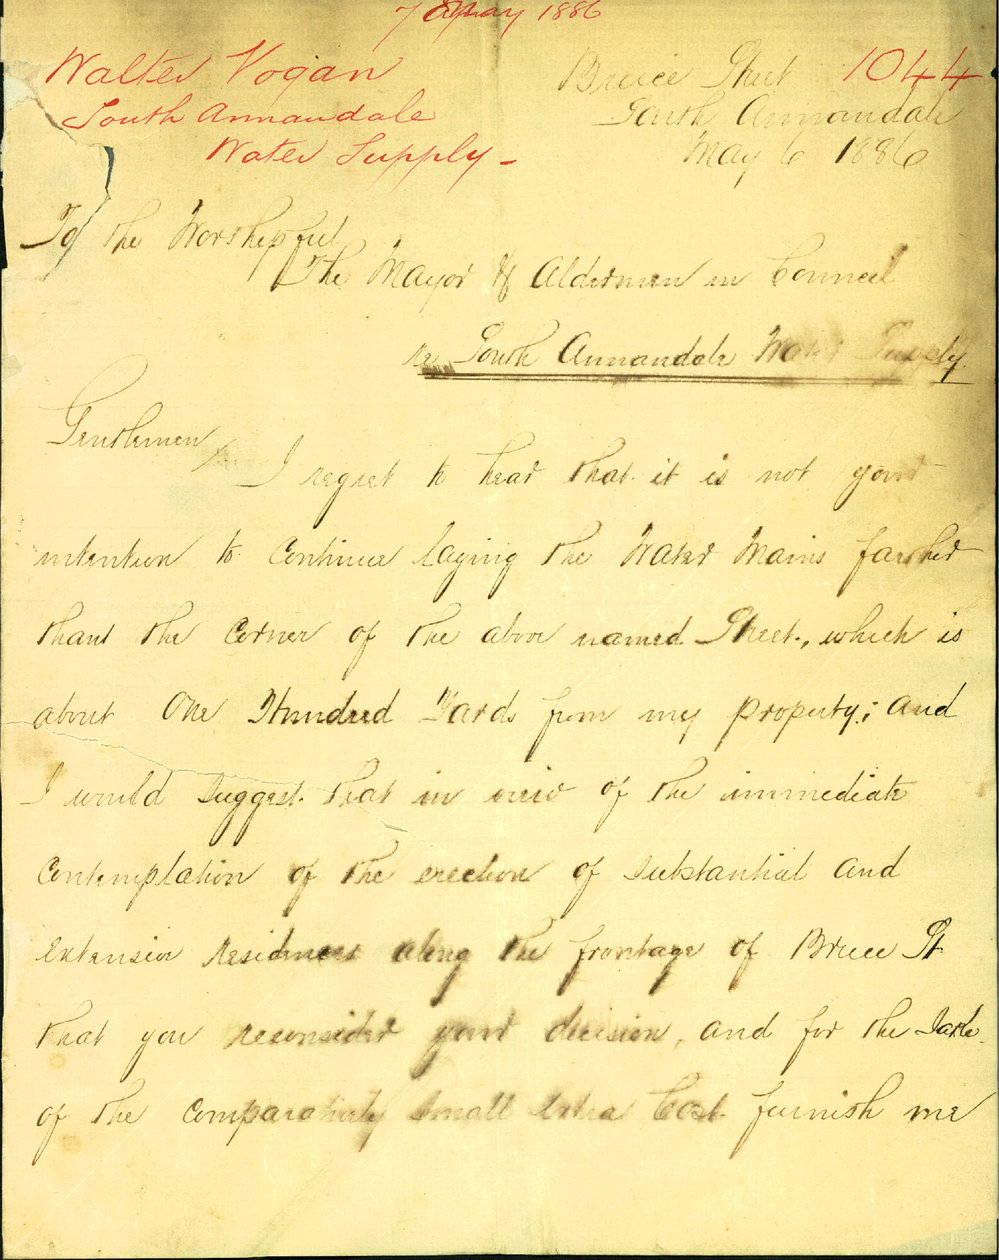 7 May 1886
Walter Vogan
South Annandale
Water Supply -
1044
Bruce Street
South Annandale
May 6 1886
To the Worshipful
The Mayor & Aldermen in Council
re South Annandale Water Supply.
Gentlemen
I regret to hear that it is not your
intention to continue laying the Water Mains farther
than the corner of the above named Street., which is
about One Hundred Yards from my property; and
I would suggest that in view of the immediate
Contemplation of the erection of substantial and
extensive residences along the frontage of Bruce St
that you reconsider your decision, and for the sake
of the comparatively small extra Cost furnish me